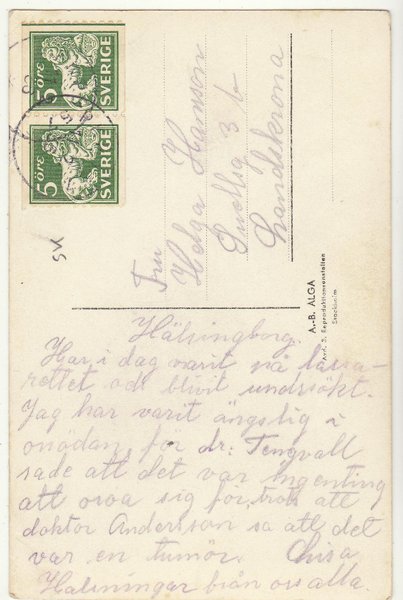 5 ÖRE
SVERIGE
5 ÖRE
SVERIGE
SV
Fru
Helga Hansson
3 b
Landskrona
A.-B. ALGA
Avd. 3. Reproduktionsanstalten
Stockholm
Hälsingborg.
Har i dag varit på lassa-
rettet och blivit undersökt.
Jag har varit ängslig i
onödan, för dr: Tengvall
sade att det var ingenting
att oroa sig för, trots att
doktor Andersson sa att det
var en tumör.
Hälsningar från oss alla.